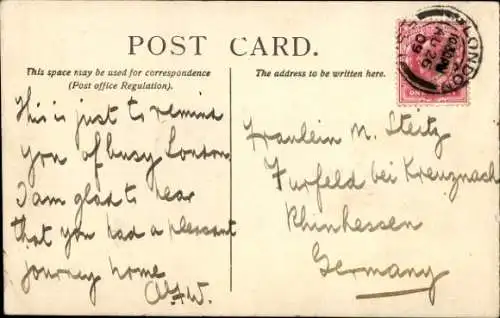 POST CARD.
This space may be used for correspondence
(Post office Regulation).
The address to be written here.
This is just to remind
you of busy London.
I am glad to hear
that you had a pleasant
journey home
Fraulein M. Steitz
Furfeld bei Kreuznach
Rhinhessen
Germany
LONDON
AU 26
09
ONE